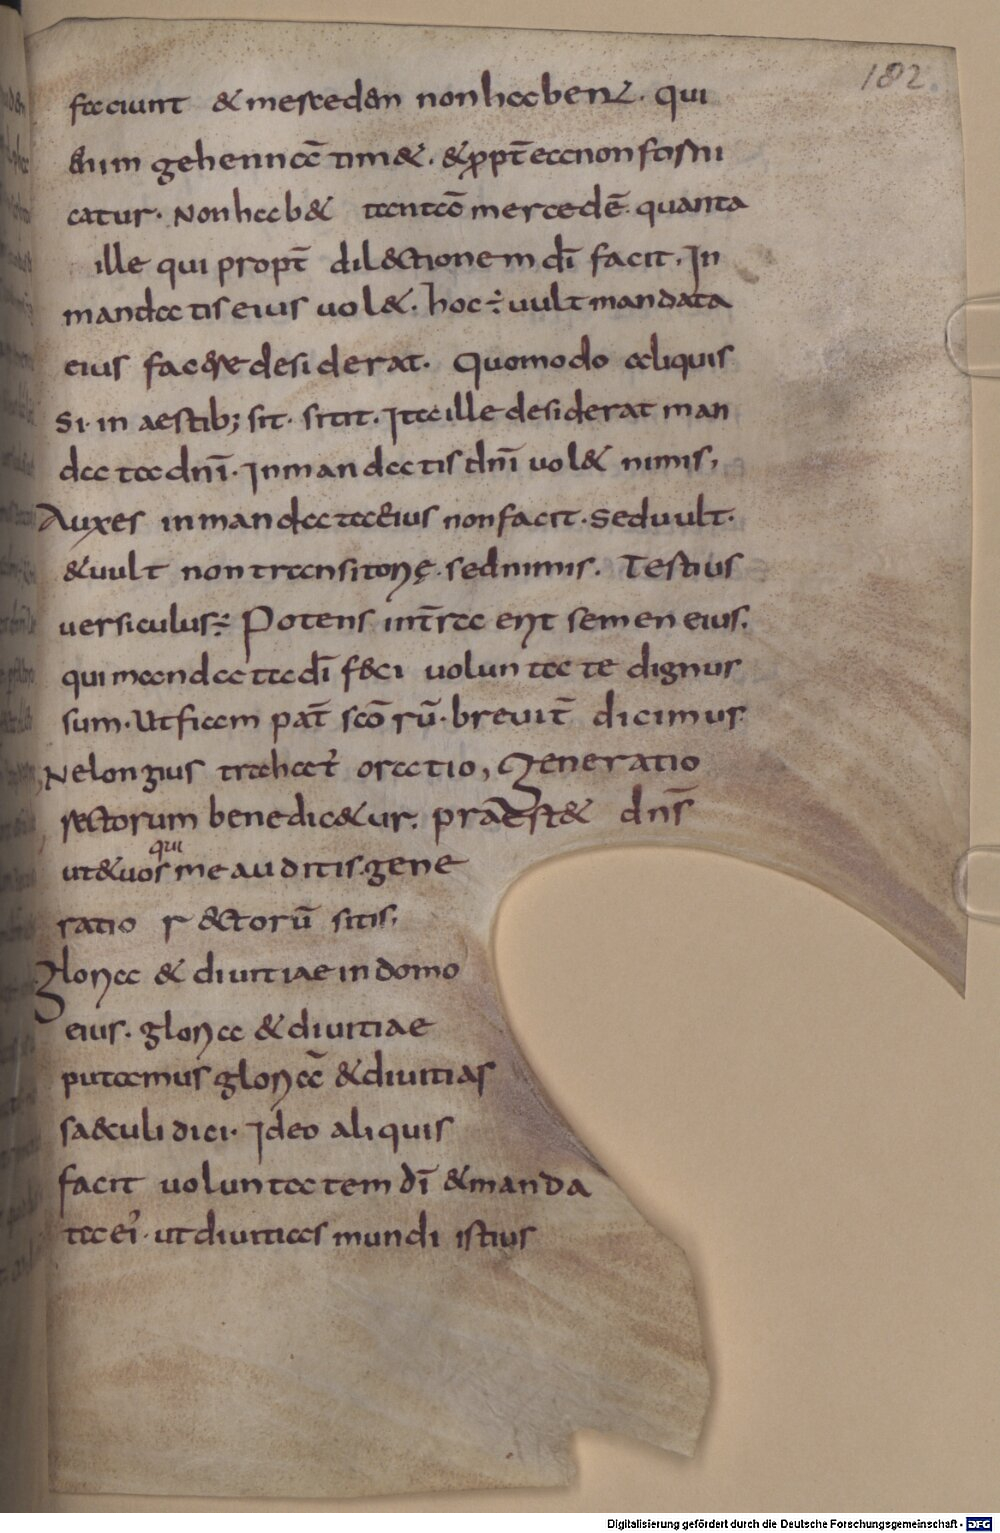 182.
faciunt & mercedem non habent. qui
enim gehennā tim&. & ꝓpt̄ ea non forni
catur. Non hab& tantā mercedē. quanta
ille qui propt̄ dil&tionem dī facit. In
mandatis eius uol&. hoc ÷ uult mandata
eius facere desiderat. Quomodo aliquis
si in aestib; sit. sitit. Ita ille desiderat man
data dnī. In mandatis dnī uol& nimis,
Auxes in mandata eius non facit. Sed uult.
& uult non transitorię. sed nimis. Testius
uersiculus; Potens in t̄ra erit semen eius.
qui mandata dī feci uoluntate dignus
sum. Ut ficem pat̄ scōrū. breuit̄ dicimus
Ne longius trahat̉ oratio, Generatio
rectorum benedic&ur. praest& dn̄s
ut & uos qui me auditis. gene
ratio r&torū sitis,
Gloria & diuitiae in domo
eius. gloria & diuitiae
putamus gloriā & diuitias
saeculi dici. Ideo aliquis
facit uoluntatem dī & manda
ta eỉ. ut diuitias mundi istius
Digitalisierung gefördert durch die Deutsche Forschungsgemeinschaft - DFG